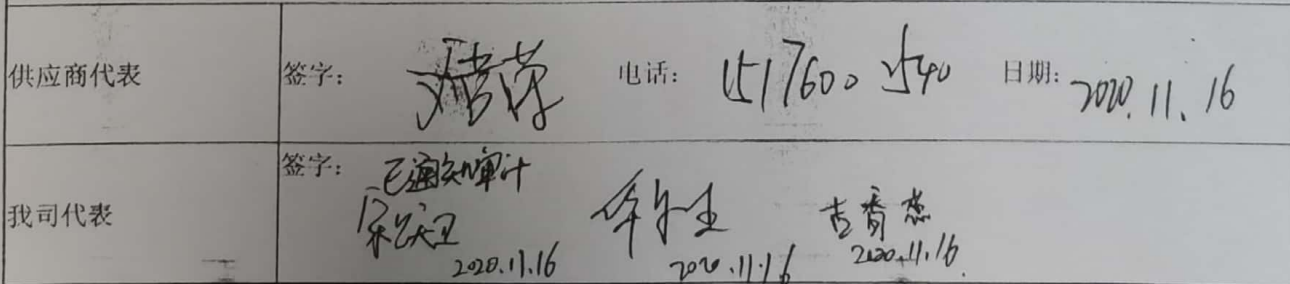 供应商代表 签字: 电话: 15176002540 日期: 2020.11.16
我司代表 签字: 已通知审计
2020.11.16 2020.11.16 2020.11.16